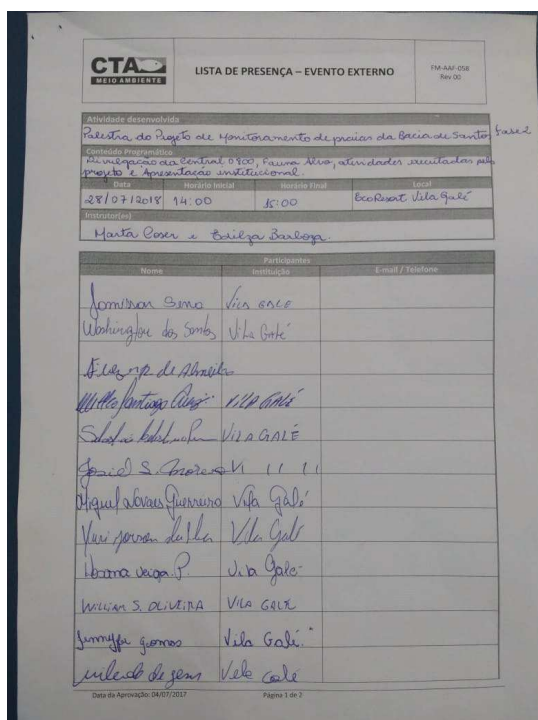 CTA
MEIO AMBIENTE
LISTA DE PRESENÇA – EVENTO EXTERNO
FM-AAF-058
Rev 00
Atividade desenvolvida
Palestra do Projeto de Monitoramento de praias da Bacia de Santos fase 2
Conteúdo Programático
Divulgação da Central 0800, Fauna Alvo, atividades executadas pelo
projeto e Apresentação institucional.
Data Horário Inicial Horário Final Local
28/07/2018 14:00 15:00 EcoResort Vila Galé
Instrutor(es)
Marta Coser e Barboza.
Participantes
Nome Instituição E-mail / Telefone
VILA GALE
Washington dos Santos Vila Galé
de Almeida
Santiago VILA GALÉ
VILA GALÉ
Josiel S. V 11 11
Miguel Novaes Guerreiro Vila Galé
Yuri Vila Galé
Veiga P. Vila Galé
WILLIAN S. OLIVEIRA VILA GALÉ
gomes Vila Galé
de Vila Galé
Data da Aprovação: 04/07/2017 Página 1 de 2